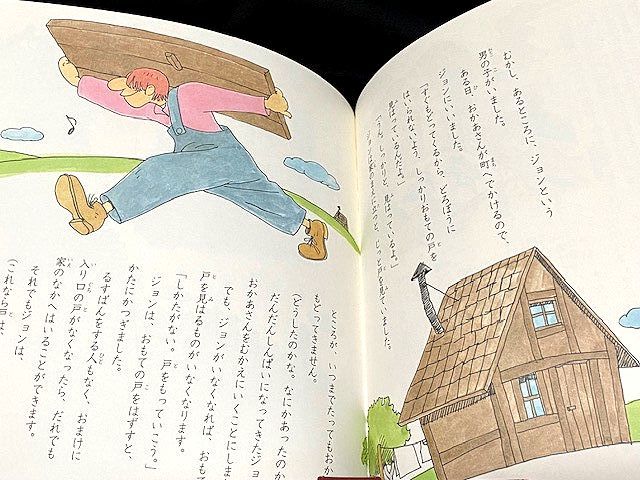 むかし、あるところに、ジョンという
男の子がいました。
ある日、おかあさんが町へでかけるので、
ジョンにいいました。
「すぐもどってくるから、どろぼうに
はいられないよう、しっかりおもての戸を
見はっているんだよ。」
「うん。しっかりと、見はっているよ。」
ジョンは家のまえに立つと、じっと戸を見ていました。
ところが、いつまでたってもおか
もどってきません。
(どうしたのかな。なにかあったのか
だんだんしんぱいになってきたジョ
おかあさんをむかえにいくことにしま
でも、ジョンがいなくなれば、おもて
戸を見はるものがいなくなります。
「しかたがない。戸をもっていこう。」
ジョンは、おもての戸をはずすと、
かたにかつぎました。
るすばんをする人もなく、おまけに
入り口の戸がなくなったら、だれでも
家のなかへはいることができます。
それでもジョンは、
(これなら戸は、